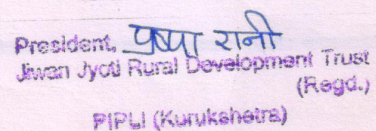 President, पुष्पा रानी
Jiwan Jyoti Rural Development Trust
(Regd.)
PIPLI (Kurukshetra)